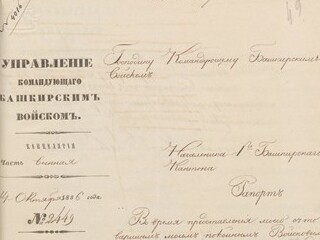 № 4016
49
УПРАВЛЕНІЕ
КОМАНДУЮЩАГО
БАШКИРСКИМЪ
ВОЙСКОМЪ.
КАНЦЕЛЯРІЯ
Часть
Октября 1856 года
№ 2449
Господину Командующему Башкирскимъ
Войскомъ
Начальника 1го Башкирскаго
Кантона
Рапортъ
Во время представленія мною
покойнымъ